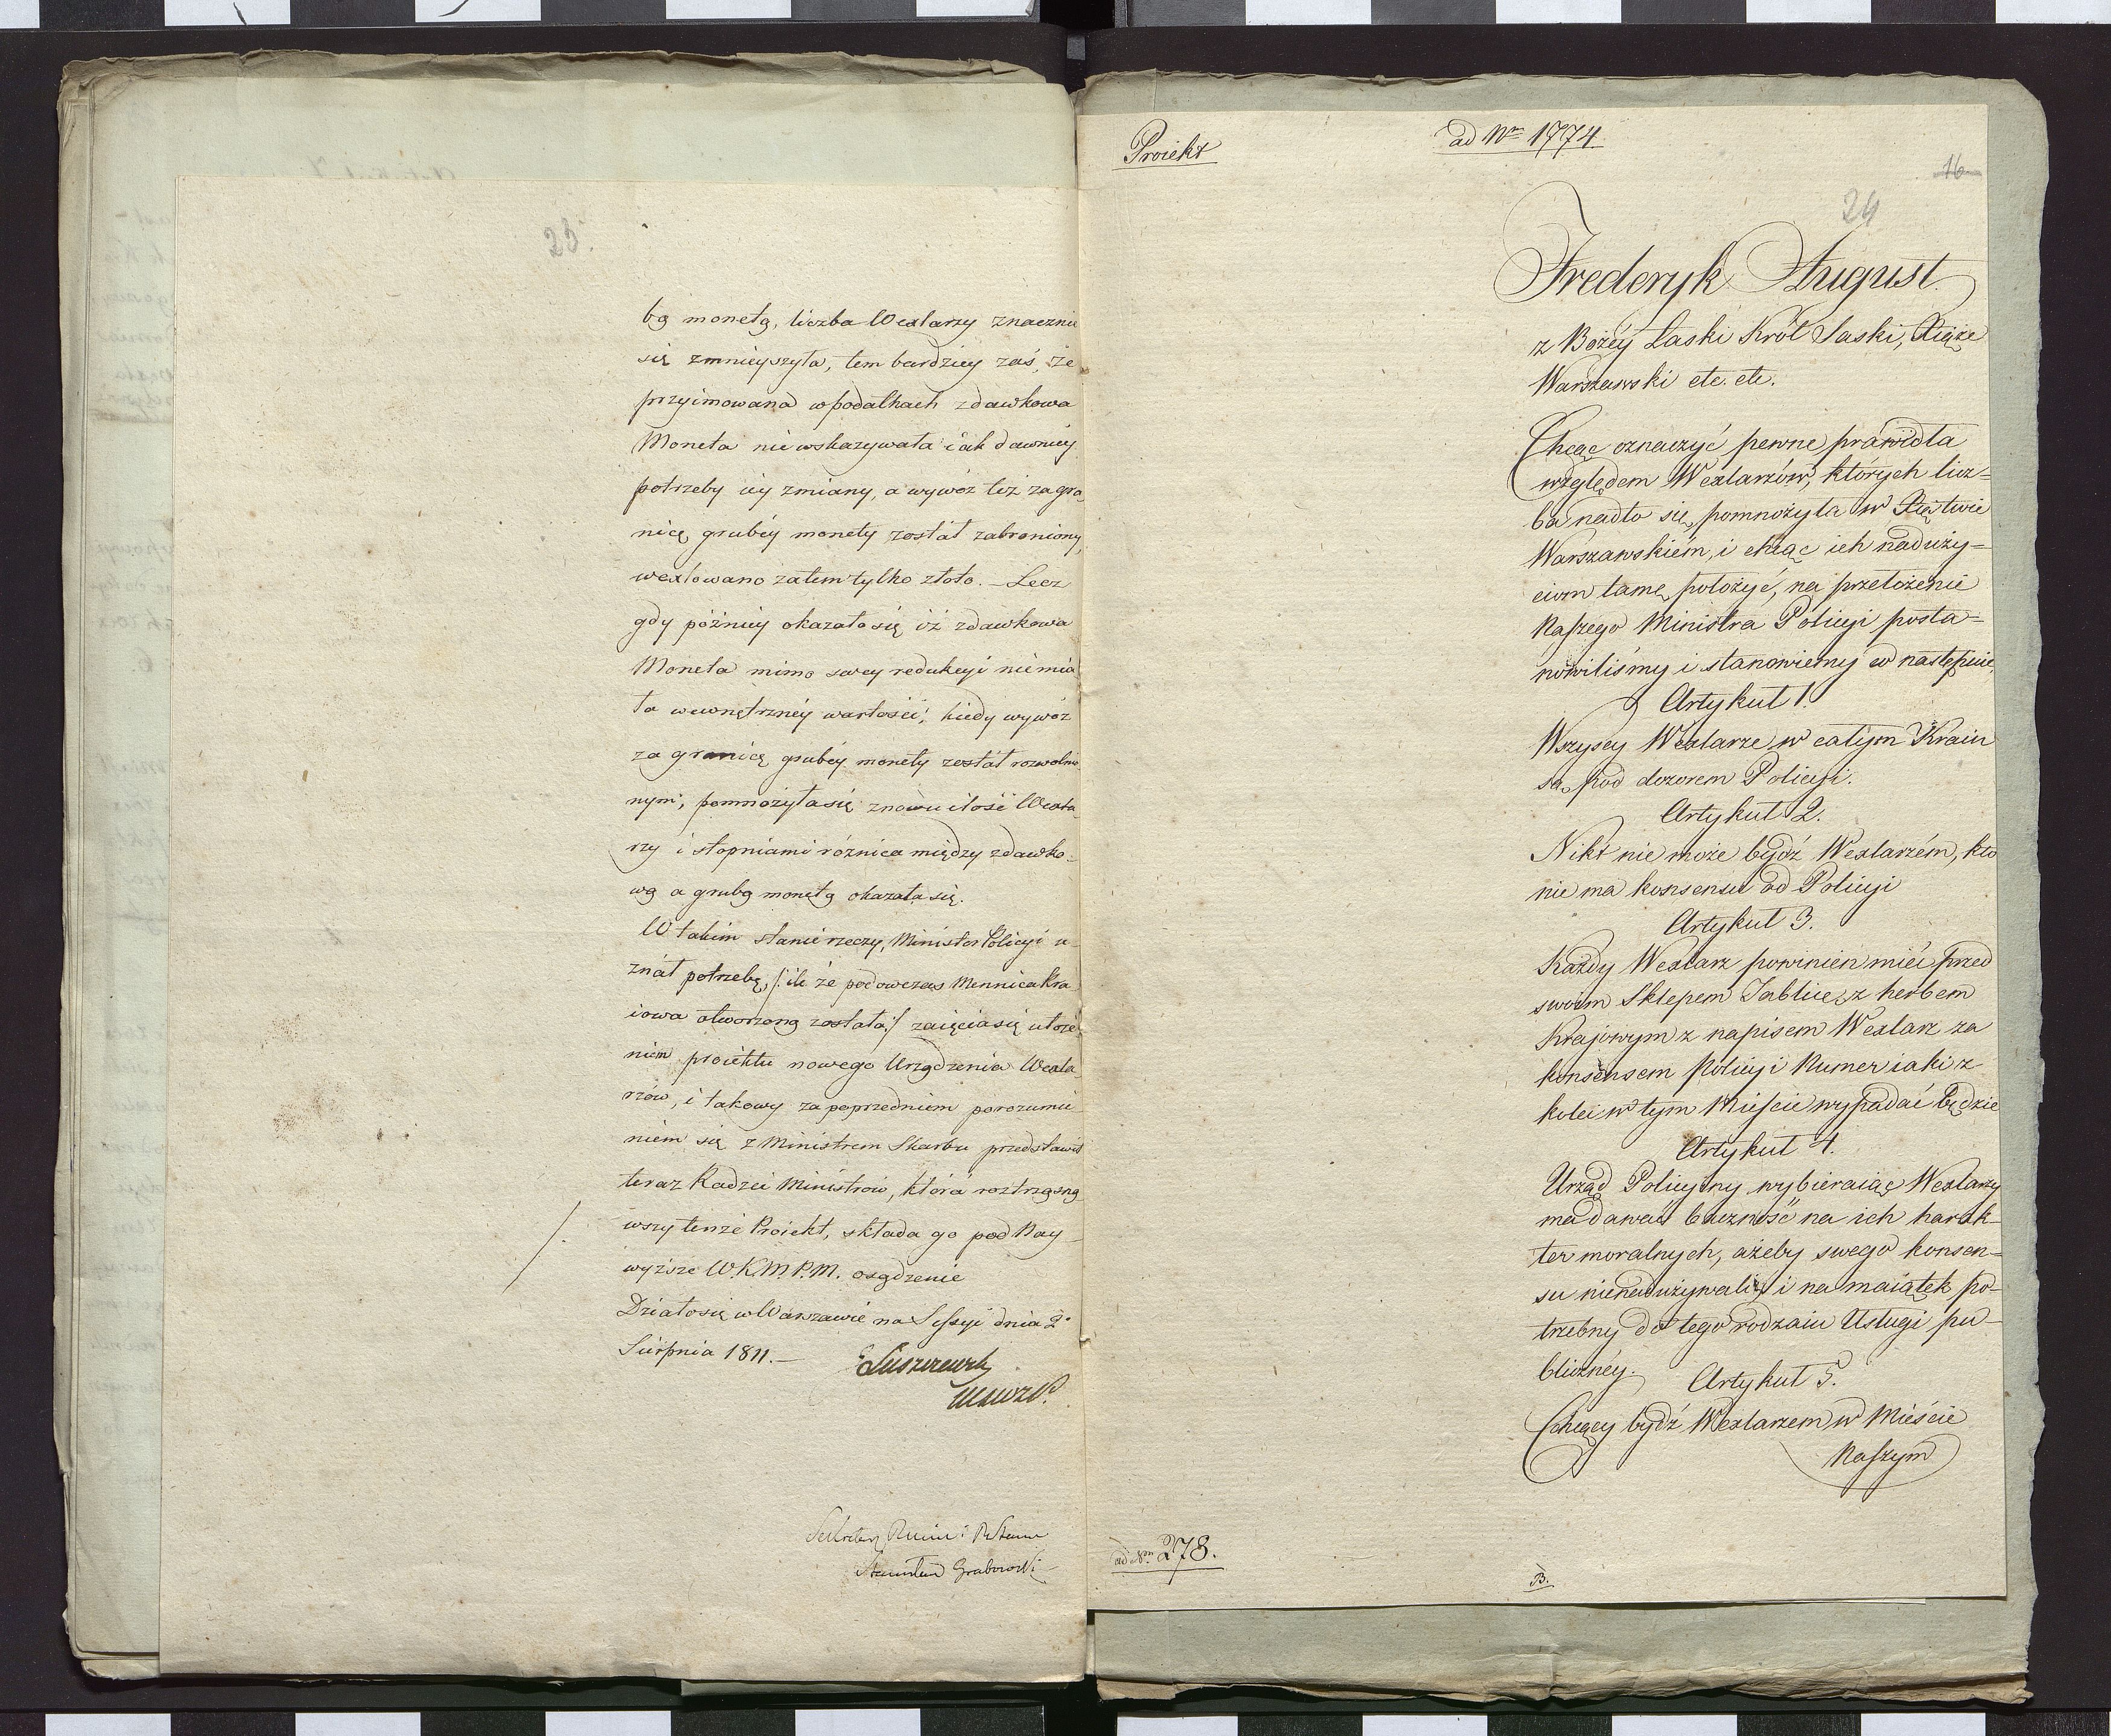 23.
bą monetą, liczba Wexlarzy znacznie
się zmnieyszyła, tem bardziey zaś, że
przyimowana w podatkach zdawkowa
Moneta nie wskazywała iak dawniey
potrzeby iey zmiany, a wywóz też za gra
nicę grubéy monety został zabroniony,
wexlowano zatem tylko złoto. – Lecz
gdy późniey okazało się iż zdawkowa
Moneta mimo swey redukcyi nie mia
ła wewnętrznéy wartości; kiedy wywóz
za granicę grubéy monety został rozwolnio
nym, pomnożyła się znowu ilość Wexla
rzy i stopniami różnica między zdawko-
wą a grubą monetą okazała się.
W takim stanie rzeczy, Minister Policyi u-
znał potrzebę, /: ile że podowczas Mennica Kra
iowa otworzoną została :/ zaięcia się ułoże
niem proiektu nowego Urządzenia Wexla
rzów, i takowy za poprzedniem porozumie
niem się z Ministrem Skarbu przedstawił
teraz Radzie Ministrów, która roztrząsną
wszy tenże Proiekt, składa go pod Nay-
wyższe W.K.M.P.M. osądzenie
Działo się w Warszawie na Sessyi dnia 2º
Sierpnia 1811. –
Łuszczewski
Sekretarz Rady Stanu
Stanisław Grabowski
Proiekt
ad Nrm 1774
16
24
Frederyk August
z Bożéy Łaski Król Saski, Xiąże
Warszawski etc. etc.
Chcąc oznaczyć pewne prawidła
względem Wexlarzów, których licz=
ba nadto się pomnożyła w Xięstwie
Warszawskiém, i chcąc ich naduży=
ciom tamę położyć, na przełożenie
Naszego Ministra Policyi posta=
nowiliśmy i stanowiemy co następuie.
Artykuł 1.
Wszyscy Wexlarze w całym Kraiu
są pod dozorem Policyi.
Artykuł 2.
Nikt nie może bydź Wexlarzém, kto
nie ma konsensu od Policyi
Artykuł 3.
Każdy Wexlarz powinien mieć przed
swoim Sklepem Tablicę z herbem
Krajowym z napisem Wexlarz za
konsensem Policyi Numer iaki z
kolei w tym Mieście wypadać będzie
Artykuł 4.
Urząd Policyiny wybieraiąc Wexlarzy
ma dawać baczność na ich harak-
ter moralnych, ażeby swego konsen=
su nienadużywali, i na maiątek po-
trzebny do tego rodzaiu Usługi pu-
bliczney.
Artykuł 5.
Chcący bydź Wexlarzem w Mieście
Naszym
ad Nrm 278.
B.